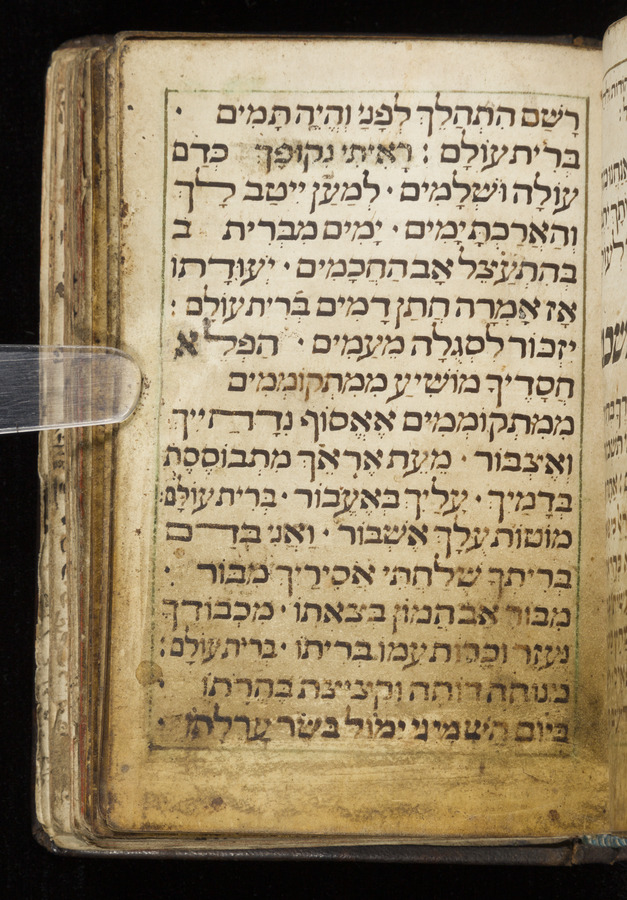 רָשַׁם הִתְהַלֵּךְ לְפָנַי וֶהְיֵה תָמִים ·
בְּרִית עוֹלָם : רָאִיתִי נְקוּפָךְ כְּדַם
עוֹלָה וּשְׁלָמִים · לְמַעַן יִיטַב לָךְ
וְהַאֲרַכְתָּ יָמִים · יָמִים מִבְּרִית ב
בְּהִתְעַצֵּל אָב הַחֲכָמִים · יְעוּדָתוֹ
אָז אָמְרָה חֲתַן דָּמִים בְּרִית עוֹלָם :
יִזְכּוֹר לִסְגֻלָּה מֵעַמִּים · הַפְלֵא
חֲסָדֶיךָ מוֹשִׁיעַ מִמִּתְקוֹמְמִים
מִמִּתְקוֹמְמִים אֶאֱסוֹף נִדָּחַיִיךְ
וְאֶצְבּוֹר · מֵעֵת אֶרְאֵךְ מִתְבּוֹסֶסֶת
בְּדָמַיִךְ · עָלַיִךְ בְּאֶעֱבוֹר · בְּרִית עוֹלָם :
מוֹטוֹת עֻלָּךְ אֶשְׁבּוֹר · וַאֲנִי בְּדַם
בְּרִיתֵךְ שִׁלַּחְתִּי אֲסִירַיִךְ מִבּוֹר ·
מִבּוֹר אַב הֲמוֹן בְּצֵאתוֹ · מִכְּבוֹדְךָ
נֶעְזַר וְכָרוֹת עִמּוֹ בְּרִיתוֹ · בְּרִית עוֹלָם :
דּוֹתָהּ וּקְצִיצַת בַּהַרְתּוֹ ·
בְּיוֹם הַשְּׁמִינִי יִמּוֹל בְּשַׂר עָרְלָתוֹ ·